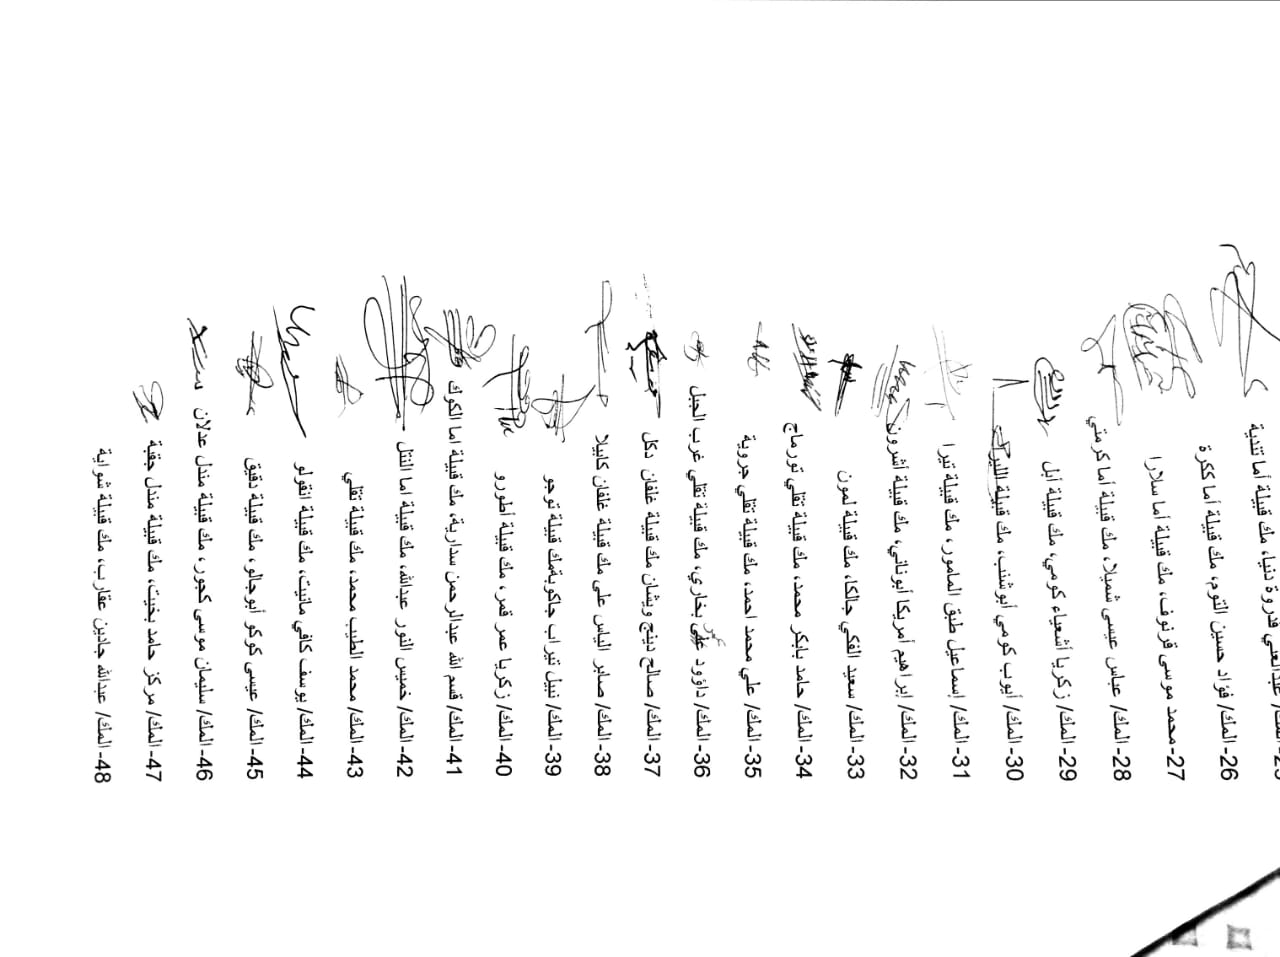 عبدالغني قدروة دنيا، مك قبيلة أما تندية
26- الملك/ فؤاد حسين التوم، مك قبيلة أما ككرة
27- محمد موسى قرنوف، مك قبيلة أما سلارا
28- الملك/ عباس عيسى شميلا، مك قبيلة أما كرمتي
29- الملك/ زكريا أشعياء كومي، مك قبيلة أبل
30- الملك/ أيوب كومي أبو شنب، مك قبيلة الليرا
31- الملك/ إسماعيل طبق المامور، مك قبيلة تيرا
32- الملك/ إبراهيم أمريكا أبوناني، مك قبيلة أشرون
33- الملك/ سعيد الفكي جالكا، مك قبيلة لمون
34- الملك/ حامد بابكر محمد، مك قبيلة تقلي تورماج
35- الملك/ علي محمد احمد، مك قبيلة تقلي جروية
36- الملك/ داؤود بخاري، مك قبيلة تقلي غرب الجبل
37- الملك/ صالح دينج ويشان مك قبيلة غلفان دكل
38- الملك/ صابر الياس على مك قبيلة غلفان كابيلا
39- الملك/ نبيل تيراب جاكوبةمك قبيلة توجو
40- الملك/ زكريا عمر قمر، مك قبيلة أطورو
41- الملك/ قسم الله عبدالرحمن سدارية، مك قبيلة اما الكوك
42- الملك/ خميس النور عبدالله، مك قبيلة اما التتل
43- الملك/ محمد الطيب محمد، مك قبيلة تقلي
44- الملك/ يوسف كافي مانيت، مك قبيلة انقولو
45- الملك/ عيسى كوكو أبوجالو، مك قبيلة دقيق
46- الملك/ سليمان موسى كجور، مك قبيلة مندل عدلان
47- الملك/ مركز حامد بخيت، مك قبيلة مندل جقبة
48- الملك/ عبدالله جادين عقارب، مك قبيلة شواية